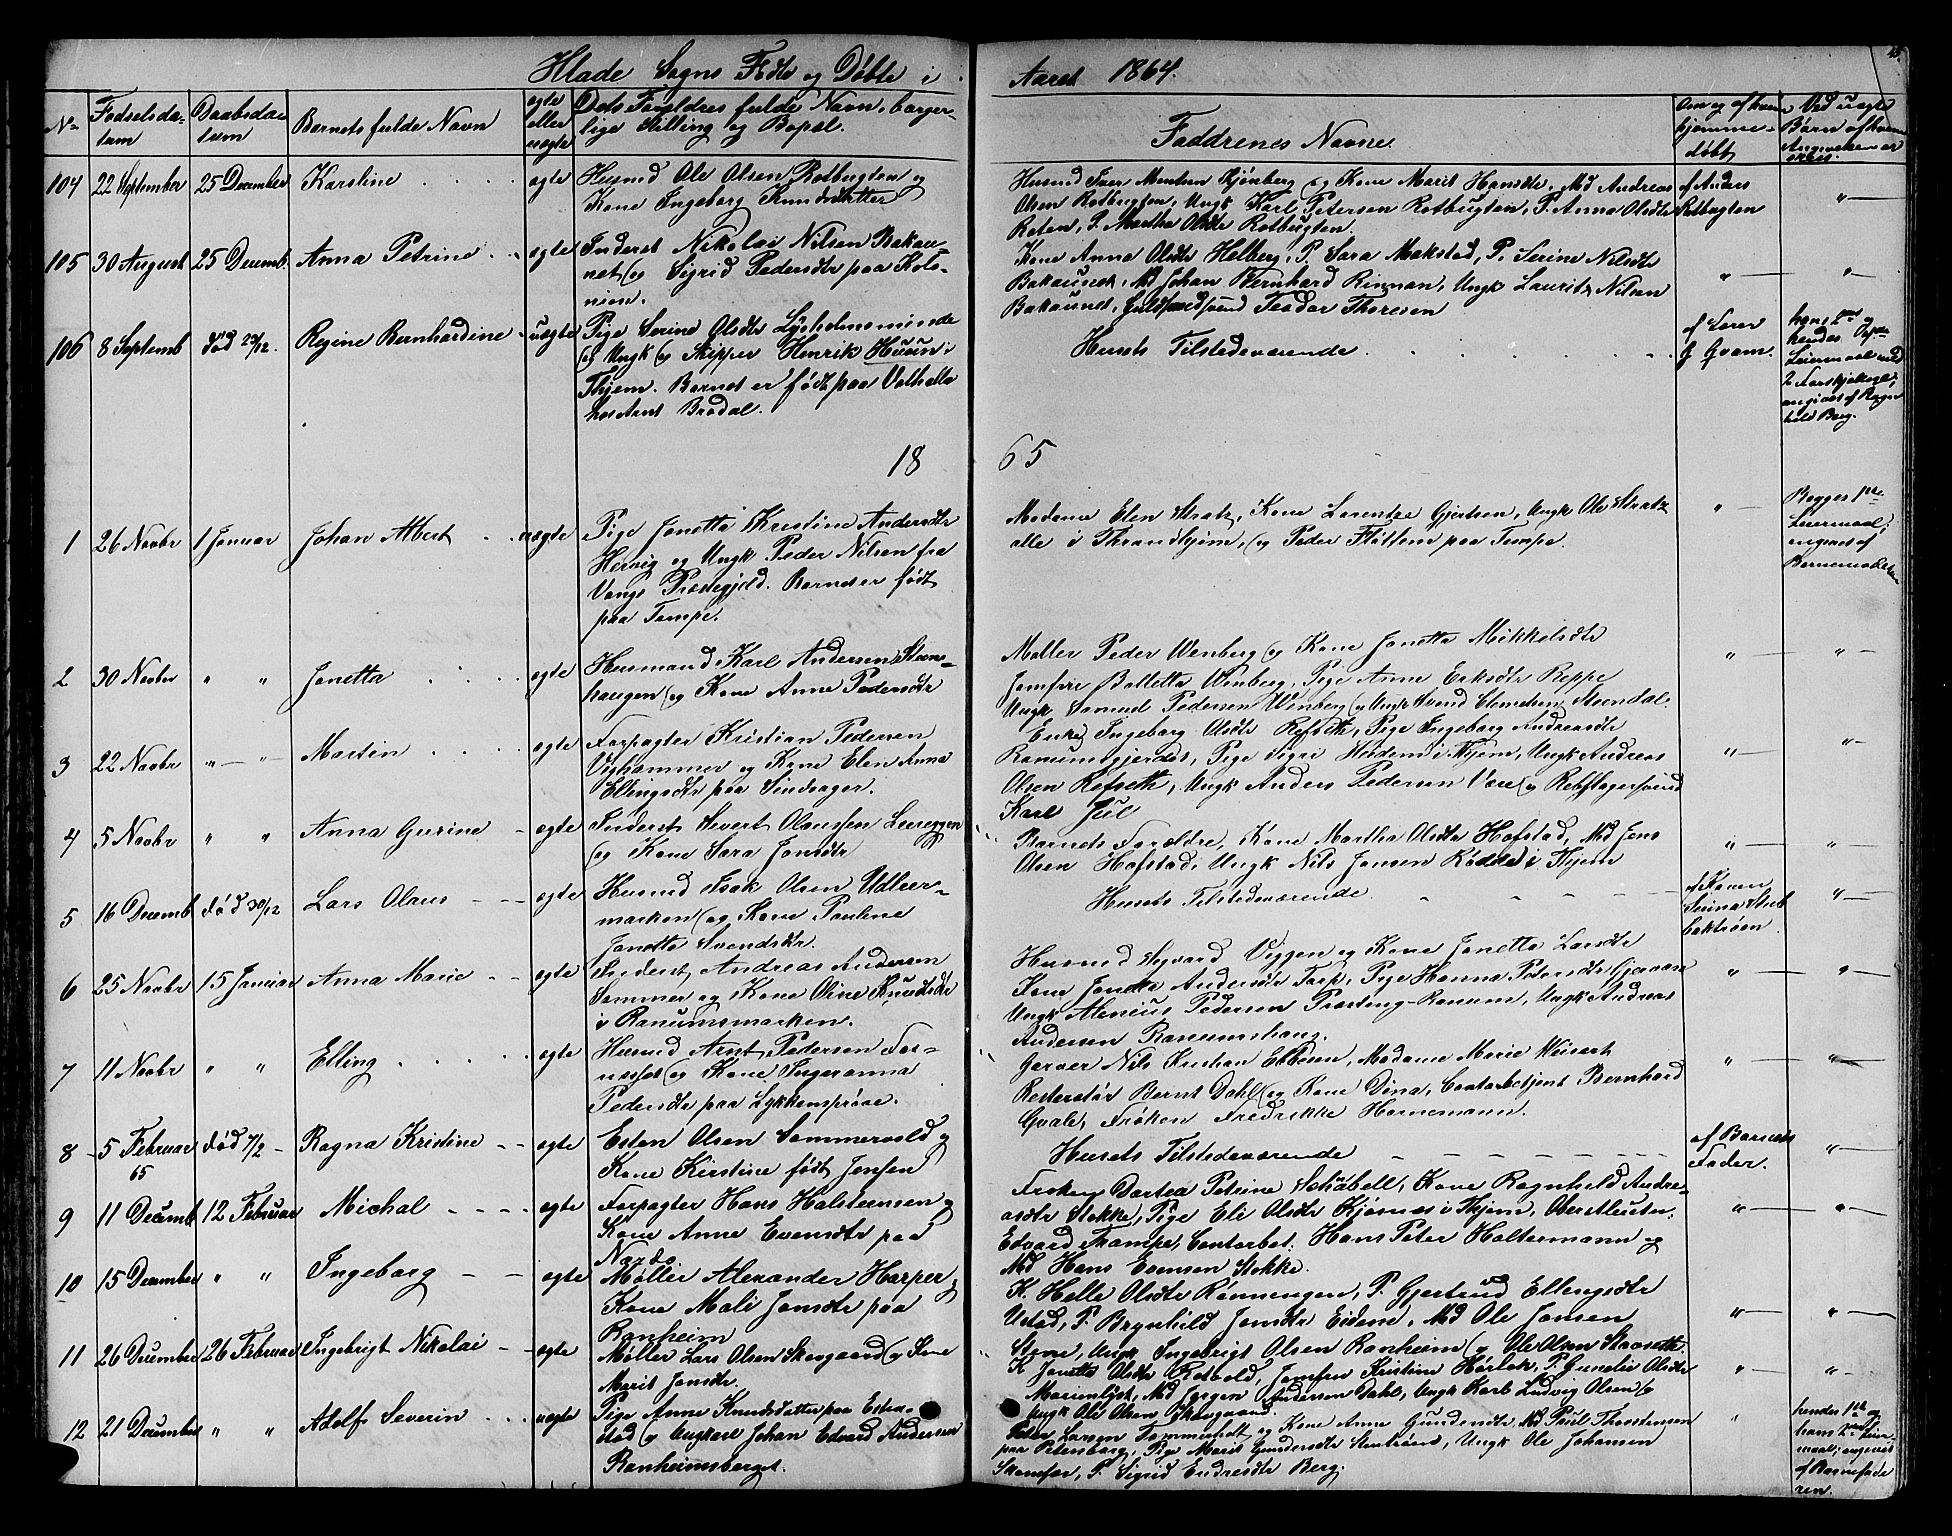 Hlade Sogns Fødte og Døbte i Aaret 1864.
No Fødselsdatum Daabsdatum Barnets fulde Navn ægte eller uægte Dets Forældres fulde Navn, borgerlige Stilling og Bopæl. Faddrenes Navne. Om og af hvem hjemmedøbt Ved uægte Børn af hvem
104 22 September 25 December Karstine ægte Husmd Ole Olsen Rotbugten og
Kone Ingeborg Knudsdatter
Husmd Iver Mentsen Kjønberg og Kone Marit Hansdtr, Md Andreas
Olsen Rotbugten, Ungk Karl Petersen Rotbugten, P. Anna Olsdtr
Roten, P. Martha Olsdtr Rotbugten.
af Anders
Rotbugten
105 30 August 25 Decemb. Anna Petrine ægte Inderst Nikolai Nilsen Bakau-
net og Sigrid Pedersdtr paa Kolo-
nien.
Kone Anna Olsdtr Helberg, P. Sara Makstad, P. Serine Nilsdtr
Bakaunet, Md Johan Bernhard Rinnan, Ungk Lauritz Nilsen
Bakaunet, Guldsmedsvend Teodor Thoresen
106 8 Septemb død 29/12. Regine Bernhardine uægte Pige Serine Olsdtr Lysholmsminde
og Ungk og Skipper Henrik
Thjem. Barnet er født paa Valhalla
hos Arnt Brødal.
Husets Tilstedeværende
af Lærer
J Gram.
hans 2det og
hendes
Leiermaal med
2 Forskjellige,
angivet af Ragn
hild Berg.
1865
1 26 Novbr 1 Januar Johan Albert uægte Pige Janetta Kristine Andersdtr
Hervig og Ungk Peder Nilsen fra
Vangs Præstegjeld. Barnet er født
paa Tempe.
Madame Elen Stratz, Kone Lorentze Gjertsen, Ungk Ole Stratz
alle i Throndhjem, og Peder Flottem paa Tempe.
Begges 1ste
Leiermaal,
angivet af
Barnemoderen
2 30 Novbr " " Janetta ægte Husmand Karl Andersen Steen-
haugen og Kone Anne Pedersdtr
Møller Peder Wenberg og Kone Janetta Mikkelsdtr
Jomfru Bolletta Wenberg, Pige Anne Eriksdtr Reppe
Ungk Samuel Pedersen Wenberg og Ungk Svend Clemetsen Steendal.
3 22 Novbr " " Martin ægte Forpagter Kristian Pedersen
Vighammer og Kone Elen Anna
Ellengsdtr paa Sindsager.
Enke Ingeborg Olsdtr Refseth, Pige Ingeborg Andreasdtr
Ranumsgjerdet, Pige Sigri i Thjem, Ungk Andreas
Olsen Refseth, Ungk Anders Pedersen Være og Rebslagersvend
Karl Jul
4 5 Novbr " " Anna Gurine ægte Inderst Sivert Olaussen Leereggen
og Kone Sara Jonsdtr
Barnets Forældre, Kone Martha Olsdtr Hofstad, Md Jens
Olsen Hofstad, Ungk Nils Jansen i Thjem
5 16 Decemb død 30/12 Lars Olaus ægte Husmd Isak Olsen Udleer-
marken og Kone Pauline
Janetta Svendsdtr.
Husets Tilstedeværende
af Karen
Serina
6 25 Novbr 15 Januar Anna Marie ægte Inderst Andreas Andersen
Sommer og Kone Oline Knudsdtr
i Ranumsmarken.
Husmd Sivard Viggen og Kone Janetta Larsdtr
Kone Jonetta Andersdtr Torp, Pige Hanna Petersdtr Gjervan
Ungk Alenius Pedersen Presteng-Ranum, Ungk Andreas
Andersen Ranumshaug.
7 11 Novbr " " Elling ægte Husmd Arnt Pedersen For-
næsset og Kone Ingeranna
Pedersdtr paa Lykkensprøve.
Garver Nils Kristian Ebbesen, Madame Marie Weisert
Restauratør Bernt Dahl og Kone Dina, Contorbetjent Bernhard
Gvale, Frøken Fredrikke Hornemann.
8 5 Februar 65 død 7/2 Ragna Kristine ægte Esten Olsen Sommervold og
Kone Kirstine født Jensen
Husets Tilstedeværende
af Barnets
Fader.
9 11 Decemb 12 Februar Michal ægte Forpagter Hans Halsteensen og
Kone Anne Evensdtr paa
Nardo
Frøken Dortea Petrine Schøbell, Kone Ragnhild Andre-
asdtr Stokke, Pige Eli Olsdtr Kjøsnes i Thjem, Oberstleutn.
Edvard Trampe, Contorbet. Hans Peter Holtermann og
Md Hans Evensen Stokke.
10 15 December " " Ingeborg ægte Møller Alexander Harper og
Kone Mali Jonsdtr paa
Ranheim
K. Helle Olsdtr Rønningen, P. Gjertrud Ellengsdtr
Ustad, P. Brynhild Jonsdtr Eidem, Md Ole Jonsen
Stene, Ungk Ingebrigt Olsen Ranheim og Ole Olsen Staaseth.
11 26 December 26 Februar Ingebrigt Nikolai ægte Møller Lars Olsen Skovgaard og Kone
Marit Jonsdtr.
K Janetta Olsdtr Rotvold, Jomfru Kristine Hørlek, P. Gunelie Olsdtr
Marienlyst, Md Jørgen Andersen Dahl, Ungk Karl Ludvig Olsen og
Ungk Ole Olsen Skovgaard.
12 21 December " " Adolf Severin uægte Pige Anne Knudsdatter paa Exte-
stad og Ungkarl Johan Edvard Andersen
Ranheimsberget.
Peder Larsen og Kone Anne Gundersdtr, Md Paul Thorstensen
paa Petersborg, Pige Marit Gundersdtr Stentrønd, Ungk Ole Johansen
P. Sigrid Endresdtr Berg.
hendes 1ste og
hans 2det Leier
maal, angivet
af Barnefade
ren.